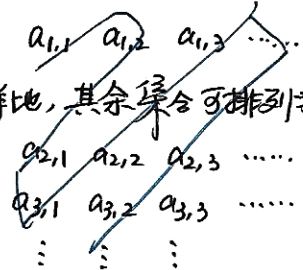 a1,1 a1,2 a1,3 ······
样地,其余集合可排列
a2,1 a2,2 a2,3 ······
a3,1 a3,2 a3,3 ······
⋮ ⋮ ⋮